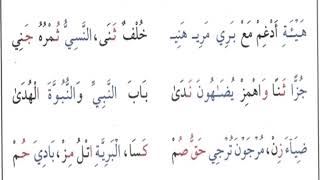 هَيْـَٔةِ أَدْغِمْ مَعْ بَرِي مَرِيـ هَنِيـ خُلْفٌ ثَنَى، النَّسِيُّ ثُمْرُهُ جَنِي
جُزًّا ثَنَا وَاهْمِزْ يُضَـٰهُونَ نَدَىٰ بَابَ النَّبِيِّ وَالنُّبُوَّةِ الْهُدَىٰ
ضِيَآءَ زِنْ، مُرْجَوْنَ تُرْجِي حَقُّ صُمْ كَسَا، الْبَرِيَّةِ اتْلُ مِزْ، بَادِيَ حُمْ